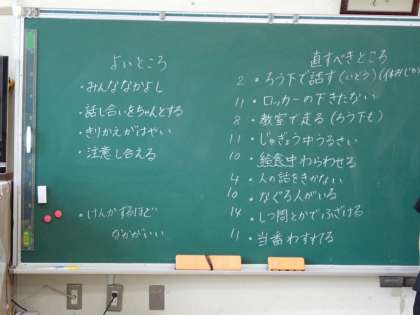 よいところ
・みんななかよし
・話し合いをちゃんとする
・きりかえがはやい
・注意し合える
・けんかするほど
なかがいい
直すべきところ
2 ・ろう下で話す(いどう)(休みじか
11 ・ロッカーの下きたない
8 ・教室で走る(ろう下も)
11 ・じゅぎょう中うるさい
10 ・給食中わらわせる
4 ・人の話をきかない
10 ・なぐる人がいる
14 ・しつ問とかでふざける
11 ・当番わすれてる